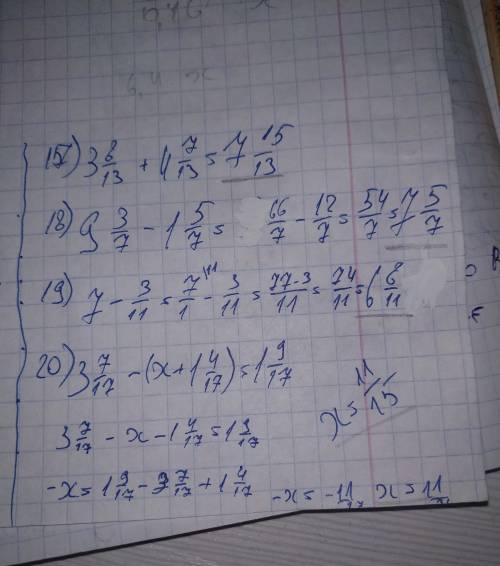 15) 3 8/13 + 4 7/13 = 7 15/13
18) 9 3/7 - 1 5/7 = 66/7 - 12/7 = 54/7 = 7 5/7
19) 7 - 3/11 = 7/1 \11 - 3/11 = 77-3/11 = 74/11 = 6 8/11
20) 3 7/17 - (x + 1 4/17) = 1 9/17
x = 11/15
3 7/17 - x - 1 4/17 = 1 9/17
-x = 1 9/17 - 3 7/17 + 1 4/17 -x = -11/17 x = 11